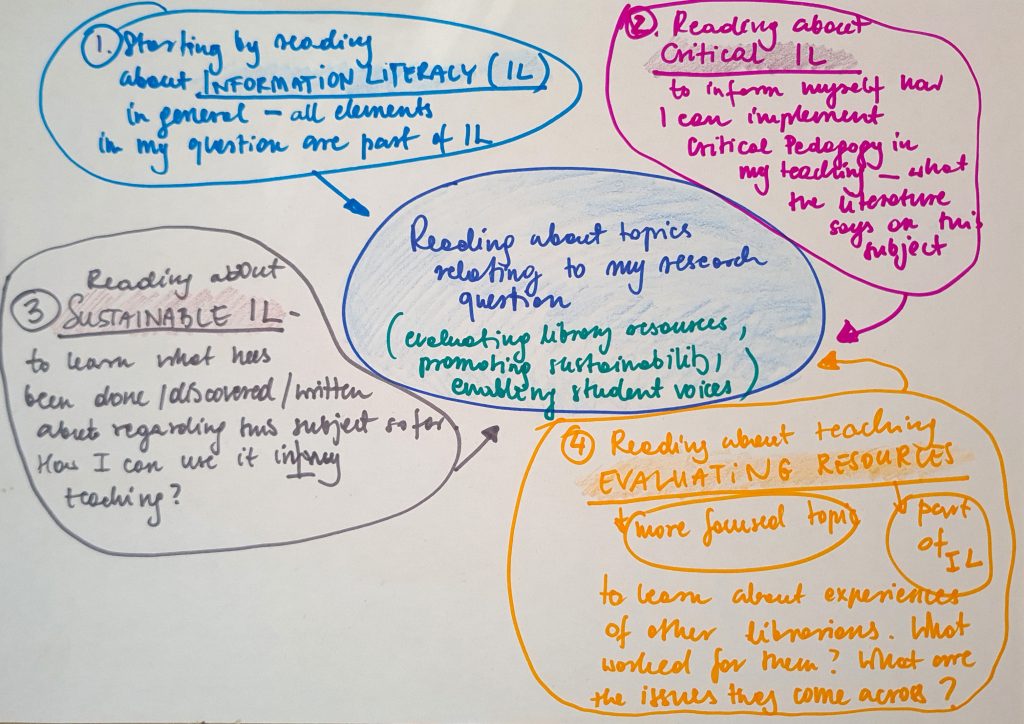 1. Starting by reading
about INFORMATION LITERACY (IL)
in general – all elements
in my question are part of IL
2. Reading about
Critical IL
to inform myself how
I can implement
Critical Pedagogy in
my teaching – what
the literature
says on this
subject
Reading about topics
relating to my research
question
(evaluating library resources,
promoting sustainability,
enabling student voices)
3 Reading about
SUSTAINABLE IL -
to learn what has
been done/discovered/written
about regarding this subject so far.
How I can use it in my
teaching?
4 Reading about teaching
EVALUATING RESOURCES
more focused topic
part
of
IL
to learn about experiences
of other librarians. What
worked for them? What are
the issues they come across?